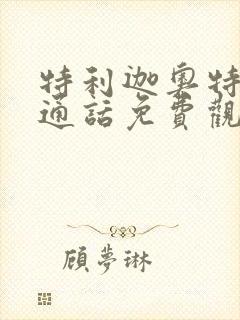 特利迦奧特
通話免費觀
顾夢琳